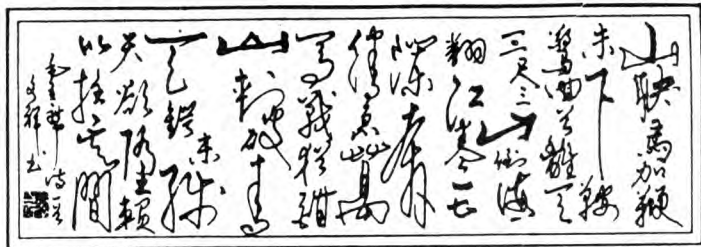 山快馬加鞭
未下鞍
驚回首離天
三尺三山倒海
翻江卷巨
瀾奔
騰急萬
馬戰猶酣
山刺破青
天鍔未殘
天欲墮賴
以拄其間
毛主席詩一首
文祥书